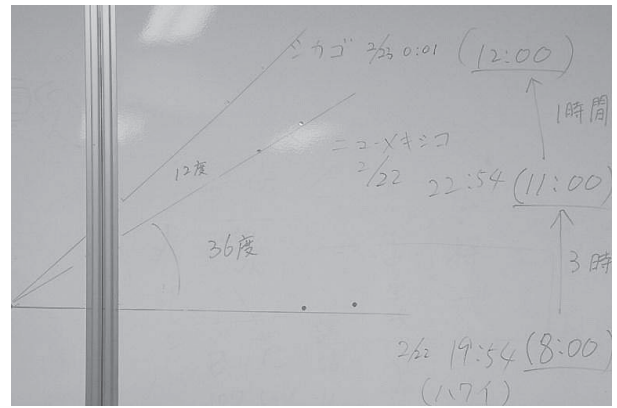 シカゴ 2/23 0:01 (12:00)
1時間
12度
ニューメキシコ
2/22 22:54 (11:00)
36度
3時
2/22 19:54 (8:00)
(ハワイ)